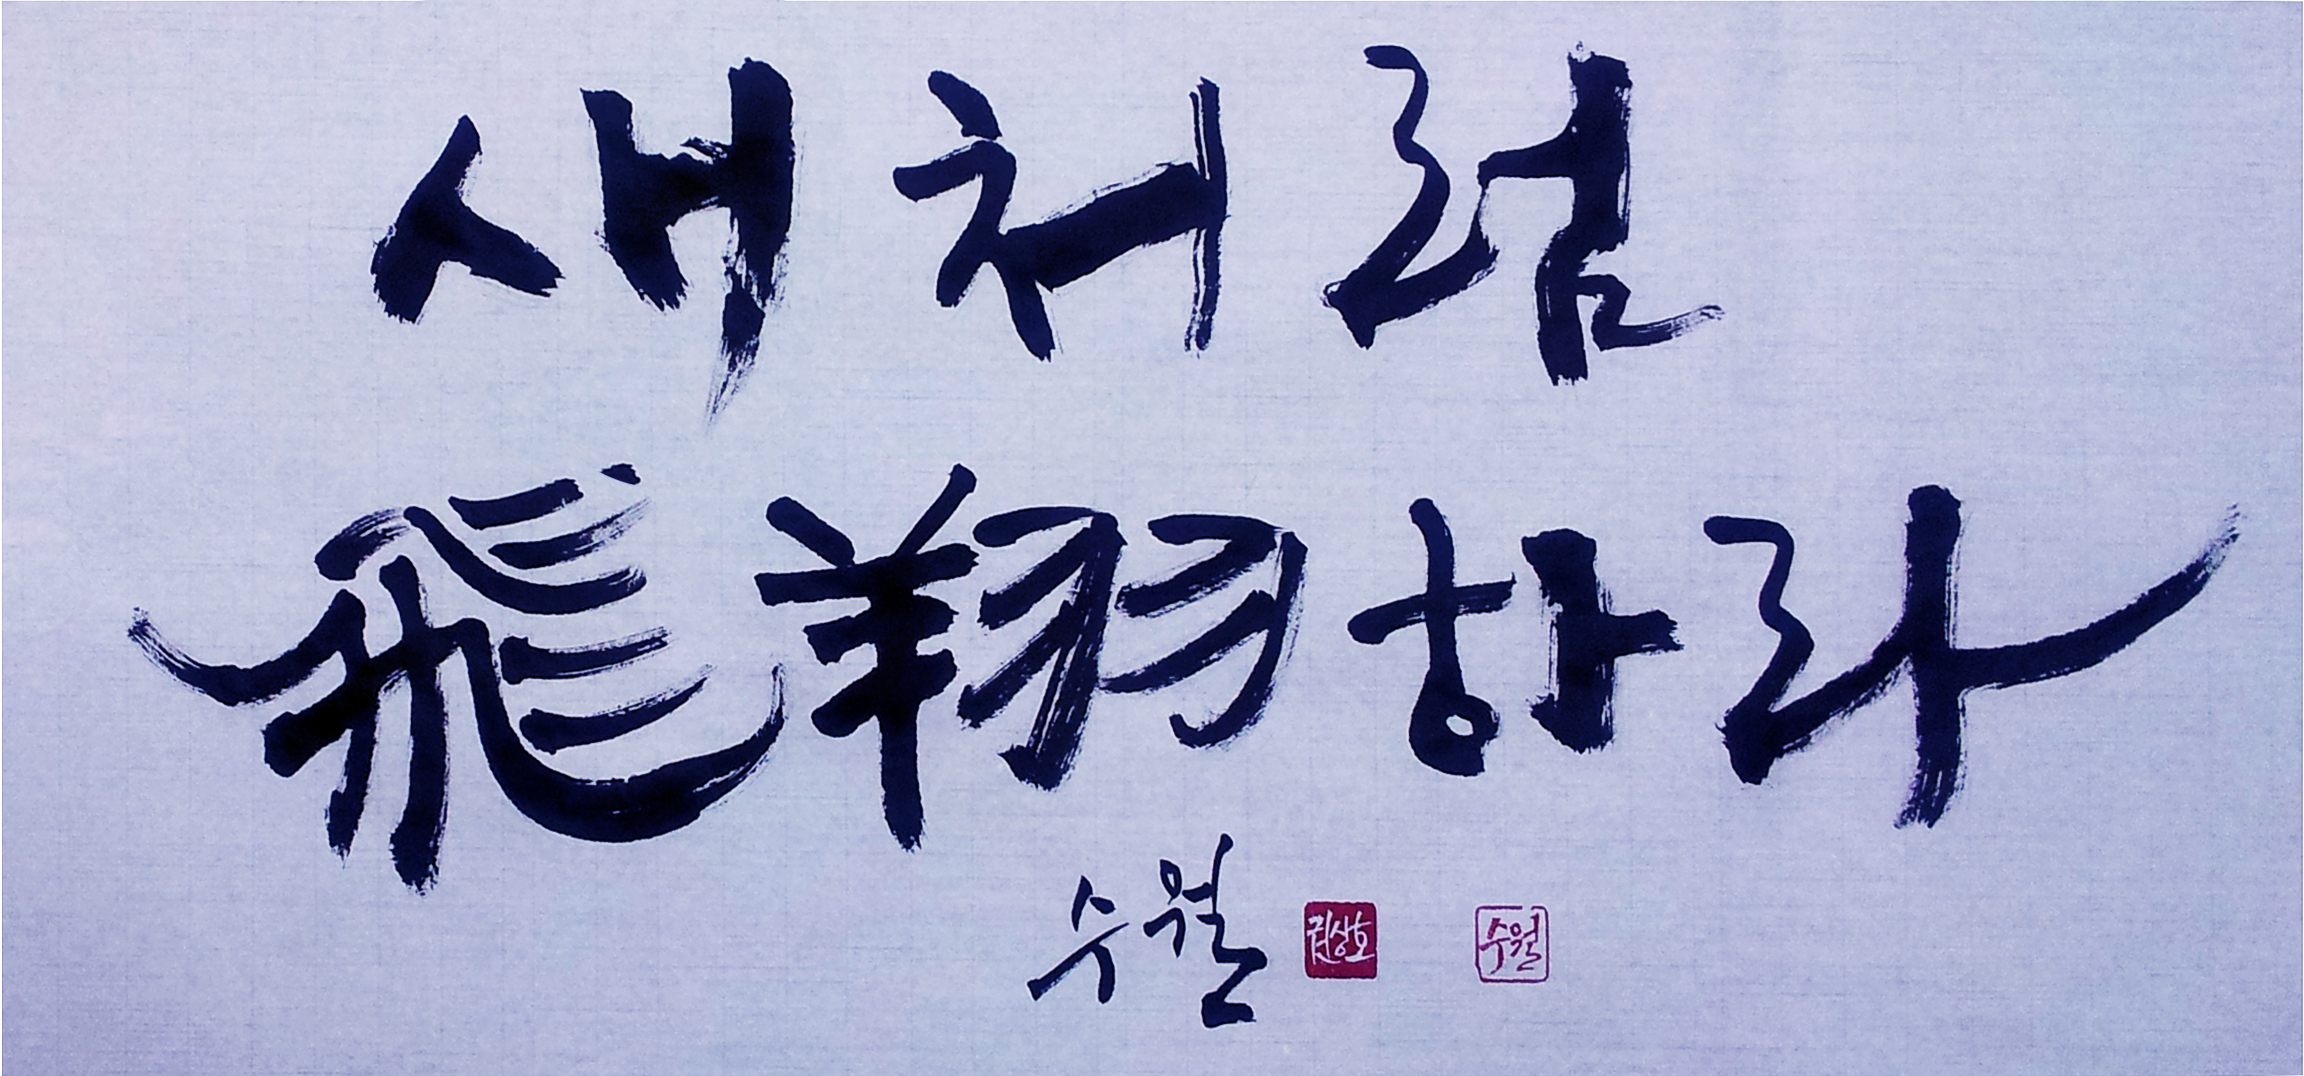 새처럼
飛翔하라
수월 권상호 수월